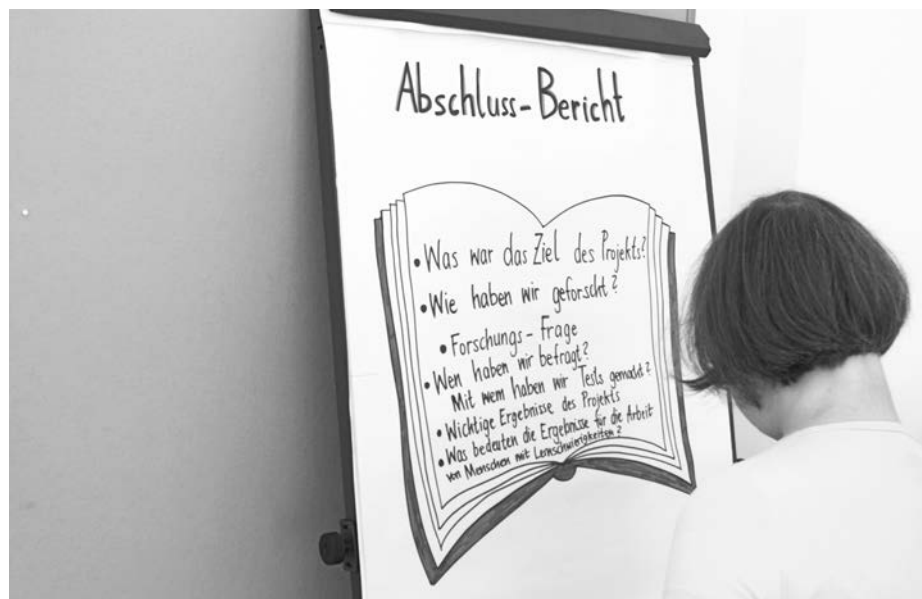 Abschluss-Bericht
• Was war das Ziel des Projekts?
• Wie haben wir geforscht?
• Forschungs-Frage
• Wen haben wir befragt?
Mit wem haben wir Tests gemacht?
• Wichtige Ergebnisse des Projekts
• Was bedeuten die Ergebnisse für die Arbeit
von Menschen mit Lernschwierigkeiten?